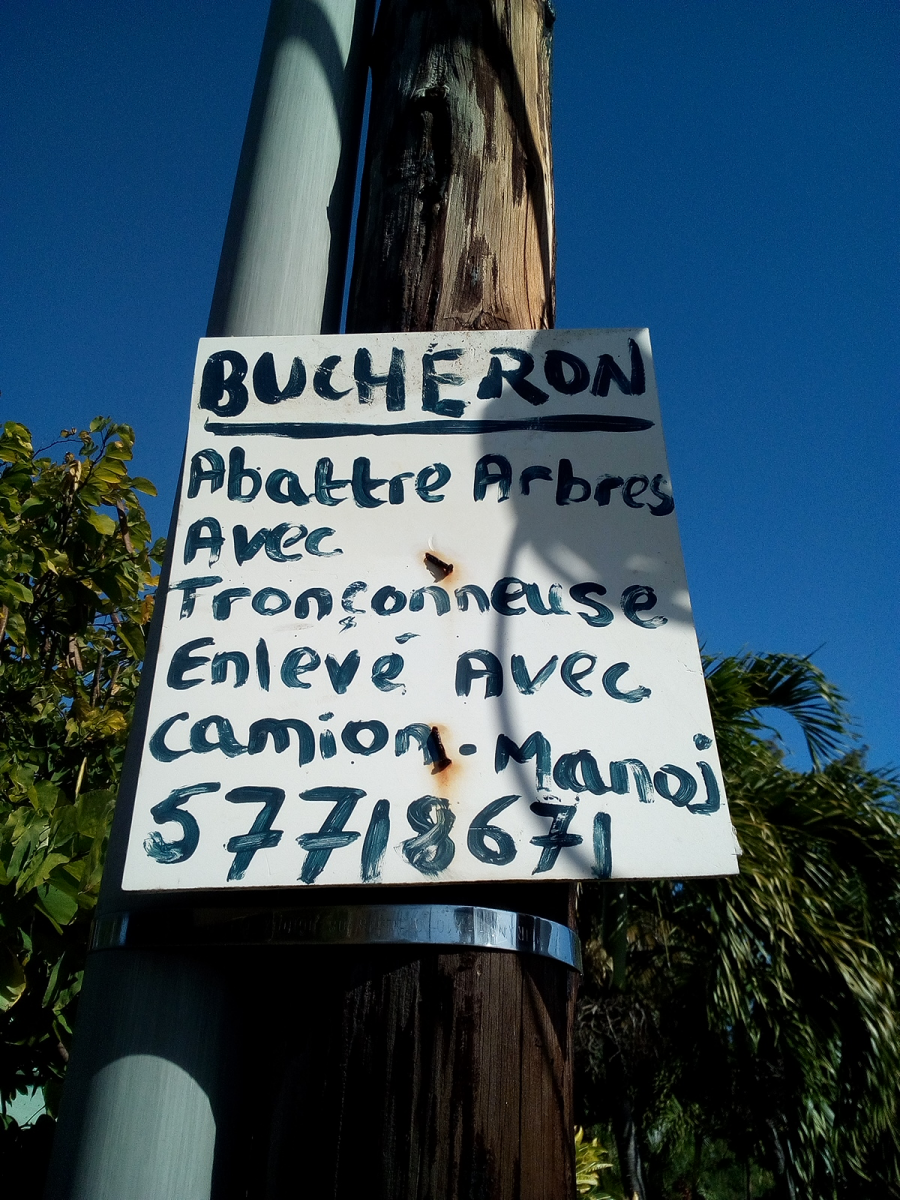 BUCHERON
Abattre Arbres
Avec
Tronçonneuse
Enlevé Avec
Camion - Manoj
57718671